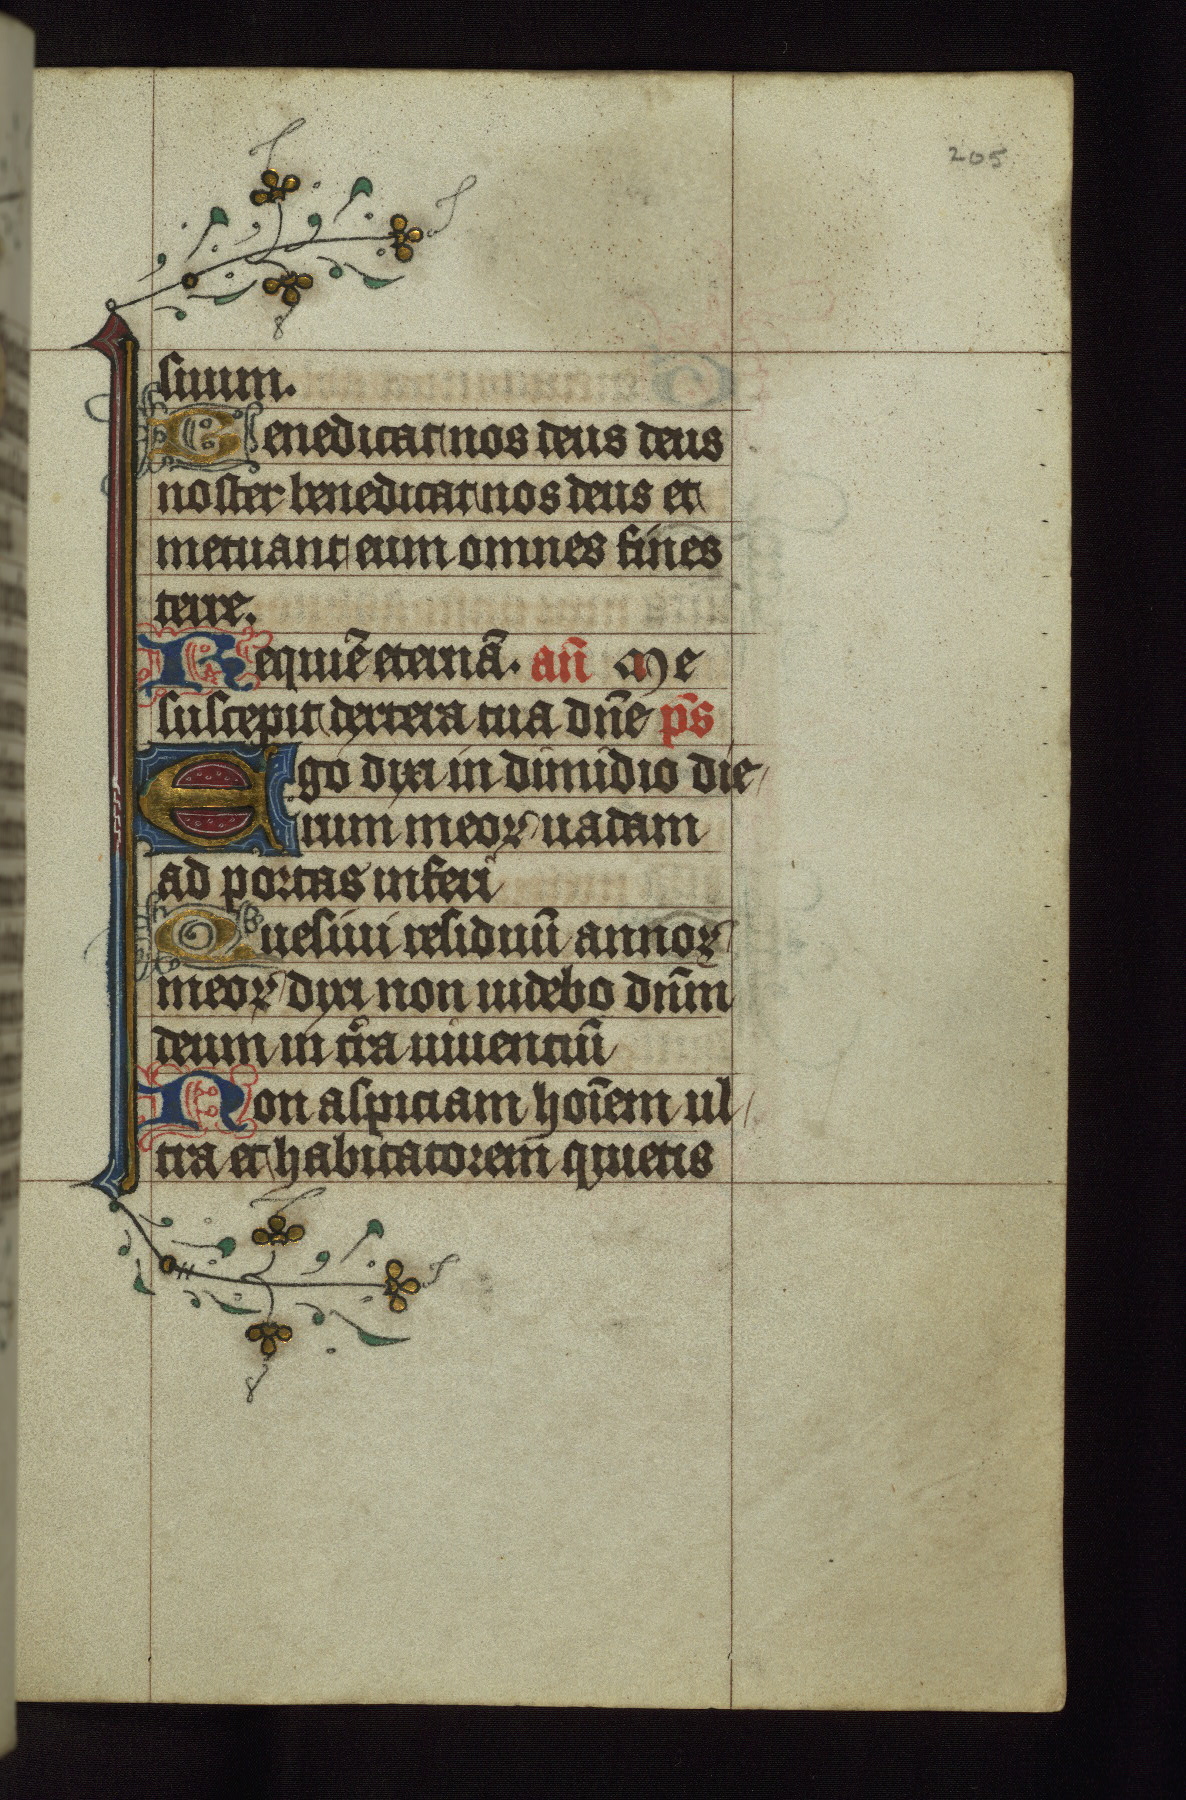 205
suum.
Benedicat nos deus deus
noster benedicat nos deus et
metuant eum omnes fines
terre.
Requiē eternā. an̄ Me
suscepit dextera tua dn̄e ps̄
Ego dixi in dimidio die
rum meoꝝ uadam
ad portas inferi
Quesiui residuū annoꝝ
meoꝝ dixi non uidebo dn̄m
deum in tr̄a uiuentiū
Non aspiciam hoīem ul
tra et habitatorem quietis